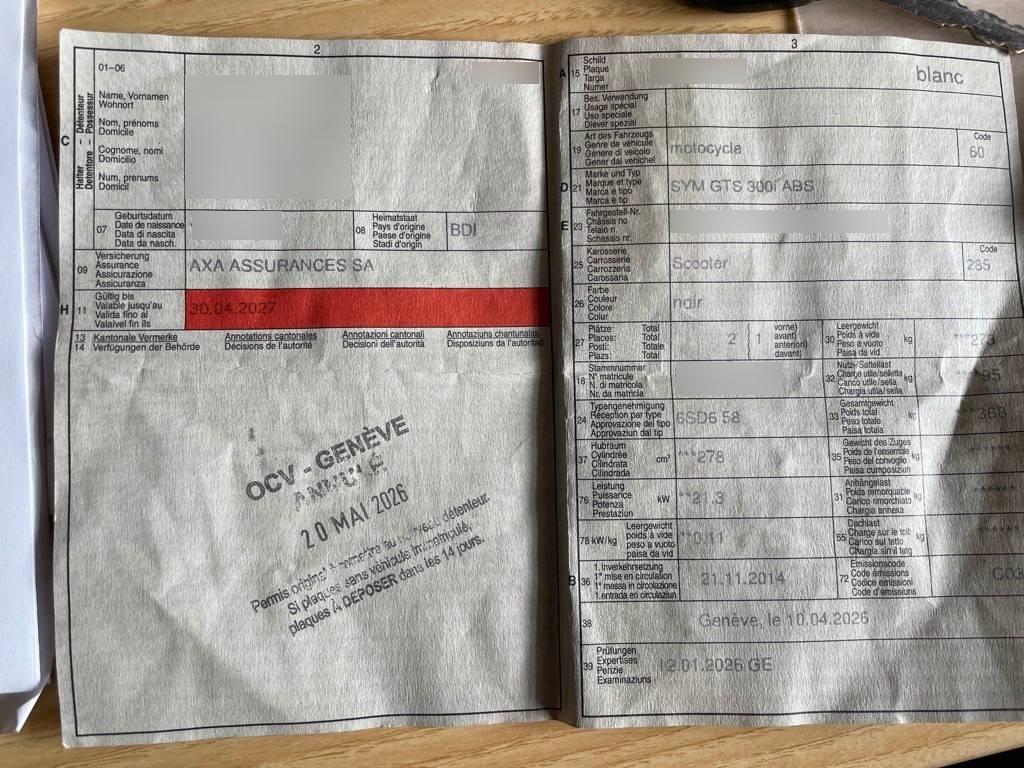 2
01-06
Halter - Détenteur
Detentore - Possessur
C
Name, Vornamen
Wohnort
Nom, prénoms
Domicile
Cognome, nomi
Domicilio
Num, prenums
Domicil
07
Geburtsdatum
Date de naissance
Data di nascita
Data da nasch.
08
Heimatstaat
Pays d'origine
Paese d'origine
Stadi d'origin
BDI
09
Versicherung
Assurance
Assicurazione
Assicuranza
AXA ASSURANCES SA
H 11
Gültig bis
Valable jusqu'au
Valida fino al
Valaivel fin ils
30.04.2027
13 Kantonale Vermerke Annotations cantonales Annotazioni cantonali Annotaziuns chantunalas
14 Verfügungen der Behörde Décisions de l'autorité Decisioni dell'autorità Disposiziuns da l'autoritad
OCV - GENÈVE
ANNULÉ
20 MAI 2026
Permis original à remettre au nouveau détenteur.
Si plaques sans véhicule immatriculé,
plaques à DEPOSER dans les 14 jours.
3
A 15
Schild
Plaque
Targa
Numer
blanc
17
Bes. Verwendung
Usage spécial
Uso speciale
Diever spezial
19
Art des Fahrzeugs
Genre de véhicule
Genere di veicolo
Gener dal vehichel
motocycle
Code
60
D 21
Marke und Typ
Marque et type
Marca e tipo
Marca e tip
SYM GTS 300I ABS
E 23
Fahrgestell-Nr.
Châssis no
Telaio n.
Schassis nr.
25
Karosserie
Carrosserie
Carrozzeria
Carossaria
Scooter
Code
285
26
Farbe
Couleur
Colore
Colur
noir
27
Plätze: Total
Places: Total
Posti: Totale
Plazs: Total
2 ( 1
vorne)
avant)
anteriori)
davant)
30
Leergewicht
Poids à vide
Peso a vuoto
Paisa da vid
kg
***273
18
Stammnummer
N° matricule
N. di matricola
Nr. da matricla
32
Nutz-/Sattellast
Charge utile/sellette
Carico utile/sella
Chargia utila/sella
kg
95
24
Typengenehmigung
Réception par type
Approvazione del tipo
Approvaziun dal tip
6SD6 58
33
Gesamtgewicht
Poids total
Peso totale
Paisa totala
kg
368
37
Hubraum
Cylindrée
Cilindrata
Cilindrada
cm³
***278
35
Gewicht des Zuges
Poids de l'ensemble
Peso del convoglio
Paisa cumposiziun
kg
******
76
Leistung
Puissance
Potenza
Prestaziun
kW
**21.3
31
Anhängelast
Poids remorquable
Carico rimorchiato
Chargia annexa
kg
******
78 kW/kg
Leergewicht
poids à vide
peso a vuoto
paisa da vid
**0.11
55
Dachlast
Charge sur le toit
Carico sul tetto
Chargia sin il tetg
kg
B 36
1.Inverkehrsetzung
1re mise en circulation
1a messa in circolazione
1.entrada en circulaziun
21.11.2014
72
Emissionscode
Code émissions
Codice emissioni
Code d'emissiuns
C03
38
Genève, le 10.04.2026
39
Prüfungen
Expertises
Perizie
Examinaziuns
12.01.2026 GE